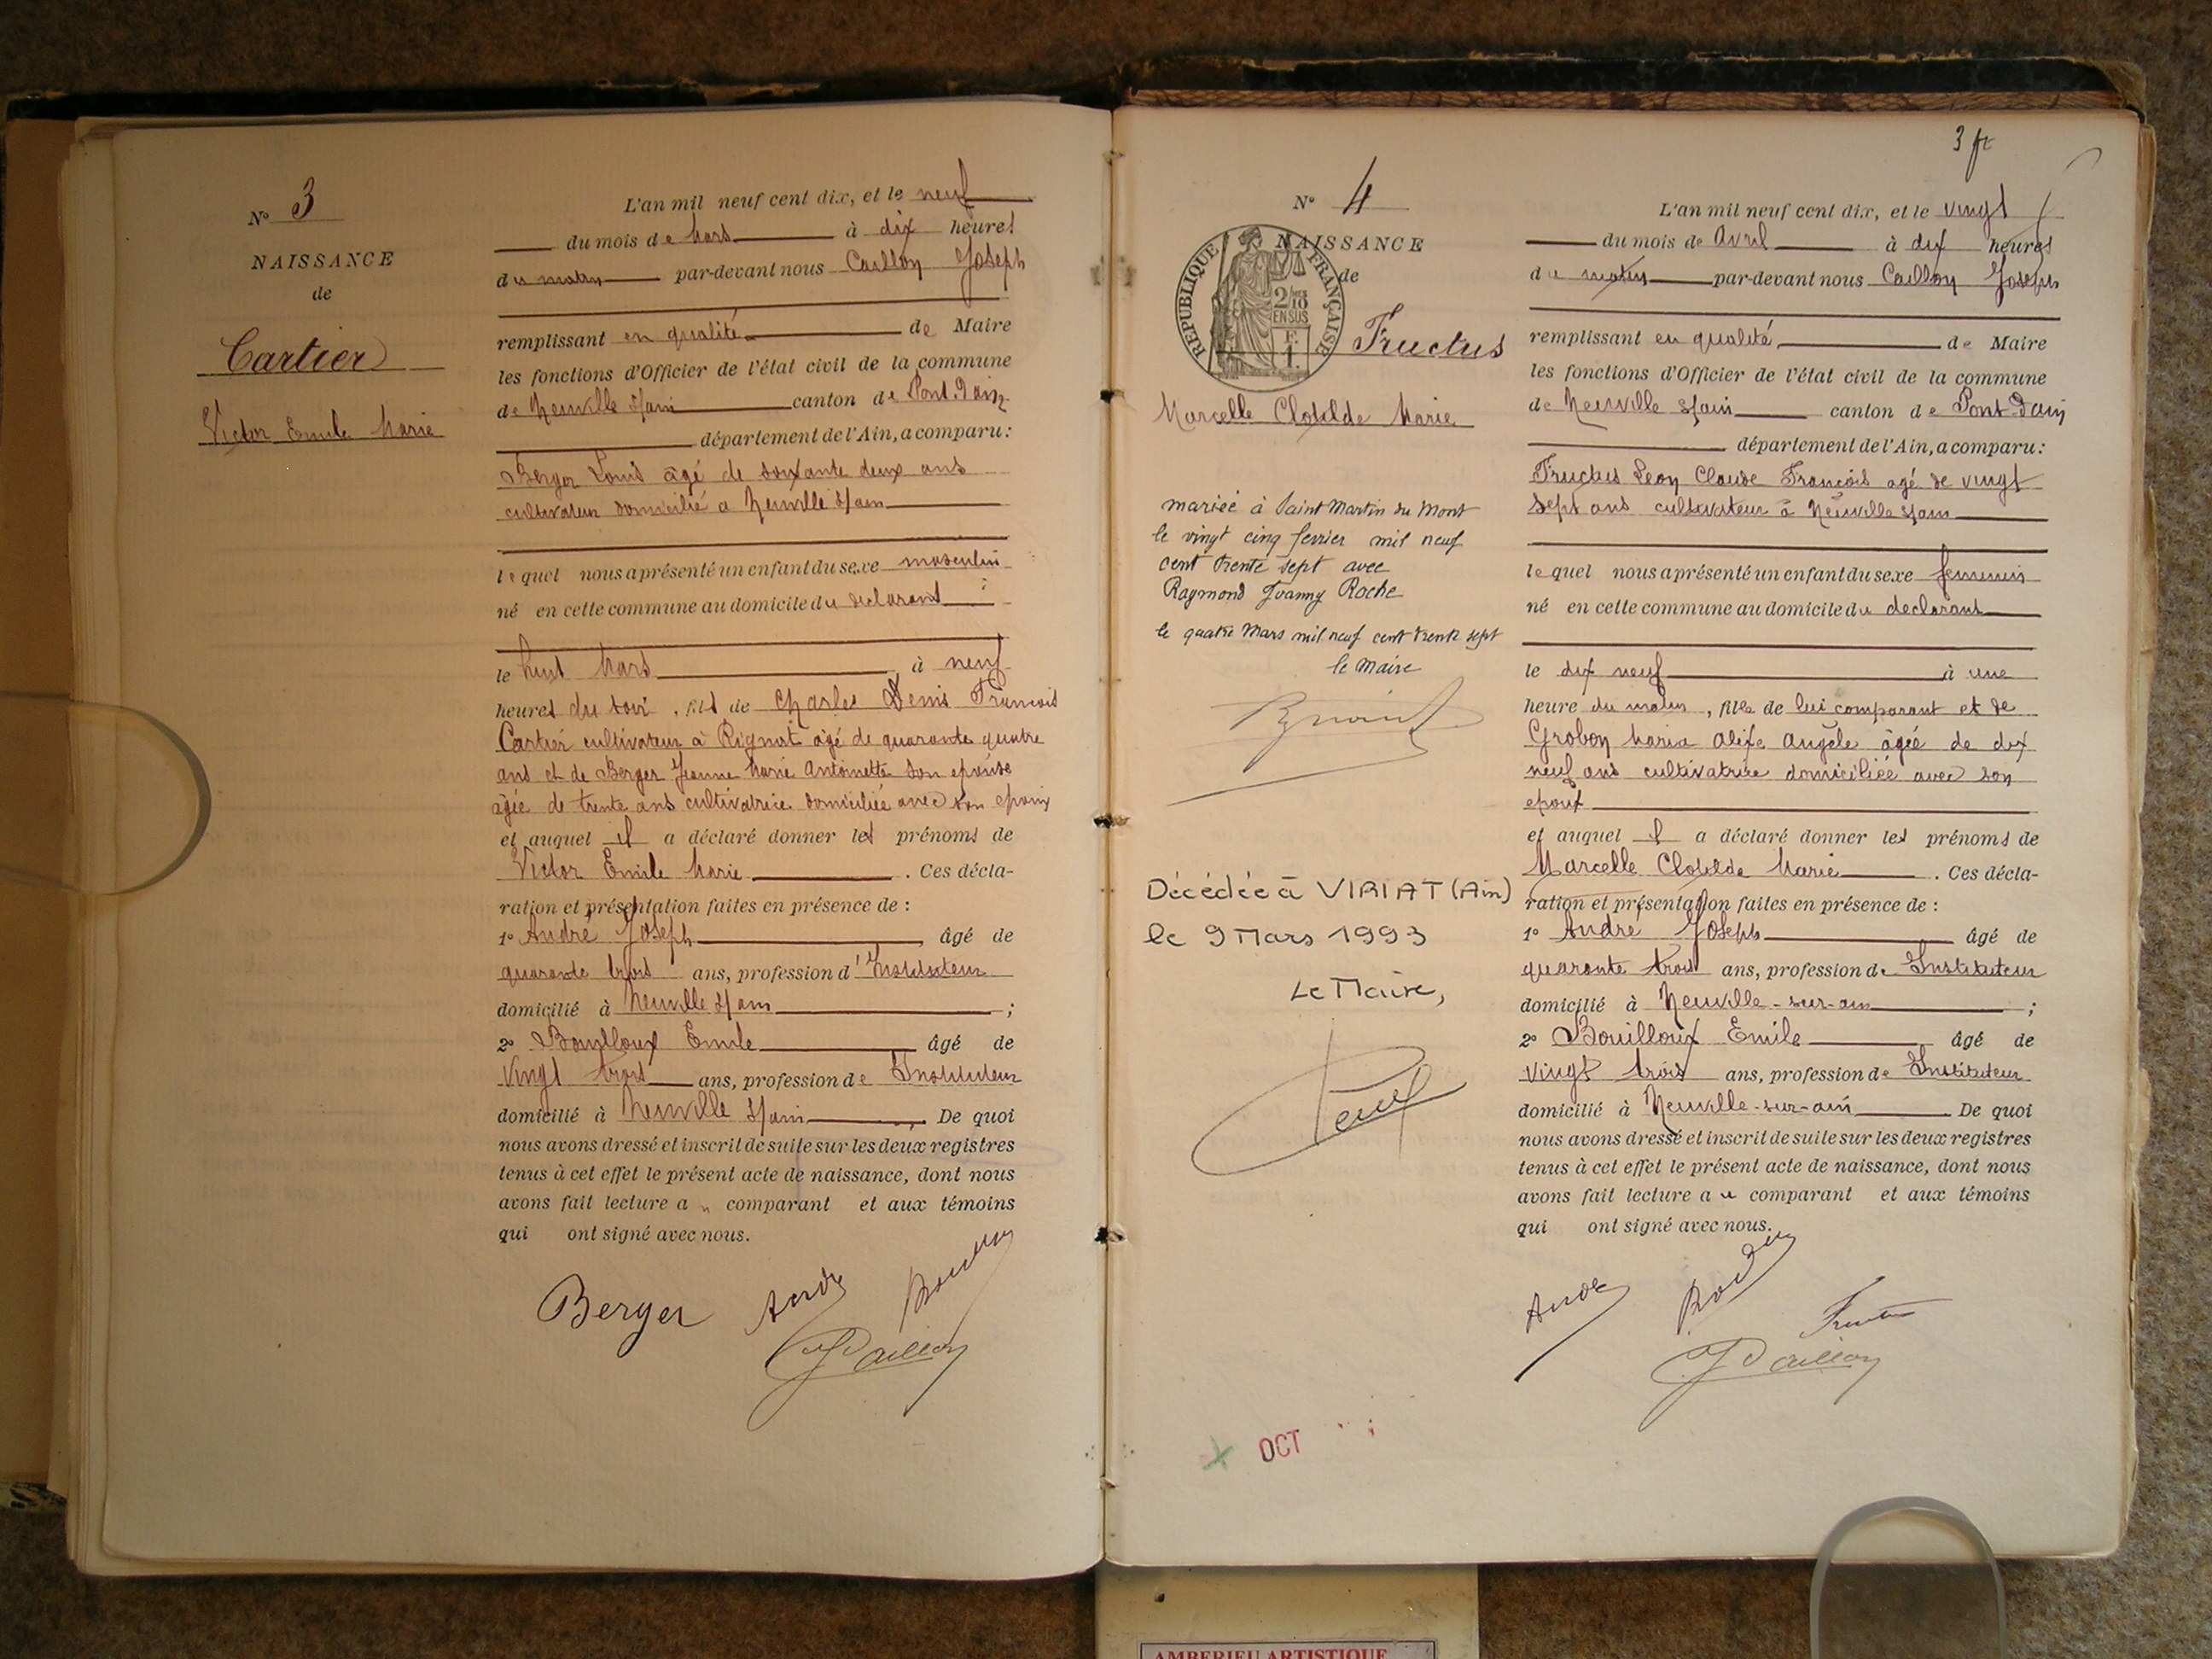 N° 3
NAISSANCE
de
Cartier
Victor Emile Marie
L'an mil neuf cent dix, et le neuf
du mois de Mars à dix heures
du matin par-devant nous Caillon Joseph
remplissant en qualité de Maire
les fonctions d'Officier de l'état civil de la commune
de Neuville s/ain canton de Pont d'ain
département de l'Ain, a comparu :
Berger Louis âgé de soixante deux ans
cultivateur domicilié a Neuville s/ain
lequel nous a présenté un enfant du sexe masculin
né en cette commune au domicile du declarant
le huit Mars à neuf
heures du soir, fils de Charles Denis François
Cartier cultivateur à Rignat âgé de quarante quatre
ans et de Berger Jeanne Marie Antoinette son epouse
âgée de trente ans cultivatrice domiciliée avec son epoux
et auquel il a déclaré donner les prénoms de
Victor Emile Marie. Ces décla-
ration et présentation faites en présence de :
1° André Joseph âgé de
quarante trois ans, profession d'Instituteur
domicilié à Neuville s/ain ;
2° Bouilloux Emile âgé de
vingt trois ans, profession de Instituteur
domicilié à Neuville s/ain De quoi
nous avons dressé et inscrit de suite sur les deux registres
tenus à cet effet le présent acte de naissance, dont nous
avons fait lecture au comparant et aux témoins
qui ont signé avec nous.
Berger André
Caillon
3 ft
N° 4
NAISSANCE
de
REPUBLIQUE FRANÇAISE
2/10
EN SUS
F.
1.
Fructus
Marcelle Clotilde Marie
mariée à Saint Martin du Mont
le vingt cinq fevrier mil neuf
cent trente sept avec
Raymond Joanny Roche
le quatre Mars mil neuf cent trente sept
le Maire
Décédée à VIRIAT (Ain)
le 9 Mars 1993
Le Maire,
L'an mil neuf cent dix, et le vingt
du mois de Avril à dix heures
du matin par-devant nous Caillon Joseph
remplissant en qualité de Maire
les fonctions d'Officier de l'état civil de la commune
de Neuville s/ain canton de Pont d'ain
département de l'Ain, a comparu :
Fructus Leon Claude François agé de vingt
sept ans cultivateur à Neuville s/ain
lequel nous a présenté un enfant du sexe feminin
né en cette commune au domicile du declarant
le dix neuf à une
heure du matin, fille de lui comparant et de
Grobon Maria Alix Angèle âgée de dix
neuf ans cultivatrice domiciliée avec son
epoux
et auquel il a déclaré donner les prénoms de
Marcelle Clotilde Marie. Ces décla-
ration et présentation faites en présence de :
1° André Joseph âgé de
quarante trois ans, profession de Instituteur
domicilié à Neuville-sur-ain ;
2° Bouilloux Emile âgé de
vingt trois ans, profession de Instituteur
domicilié à Neuville-sur-ain De quoi
nous avons dressé et inscrit de suite sur les deux registres
tenus à cet effet le présent acte de naissance, dont nous
avons fait lecture au comparant et aux témoins
qui ont signé avec nous.
André Fructus
Caillon
OCT
AMBERIEU ARTISTIQUE